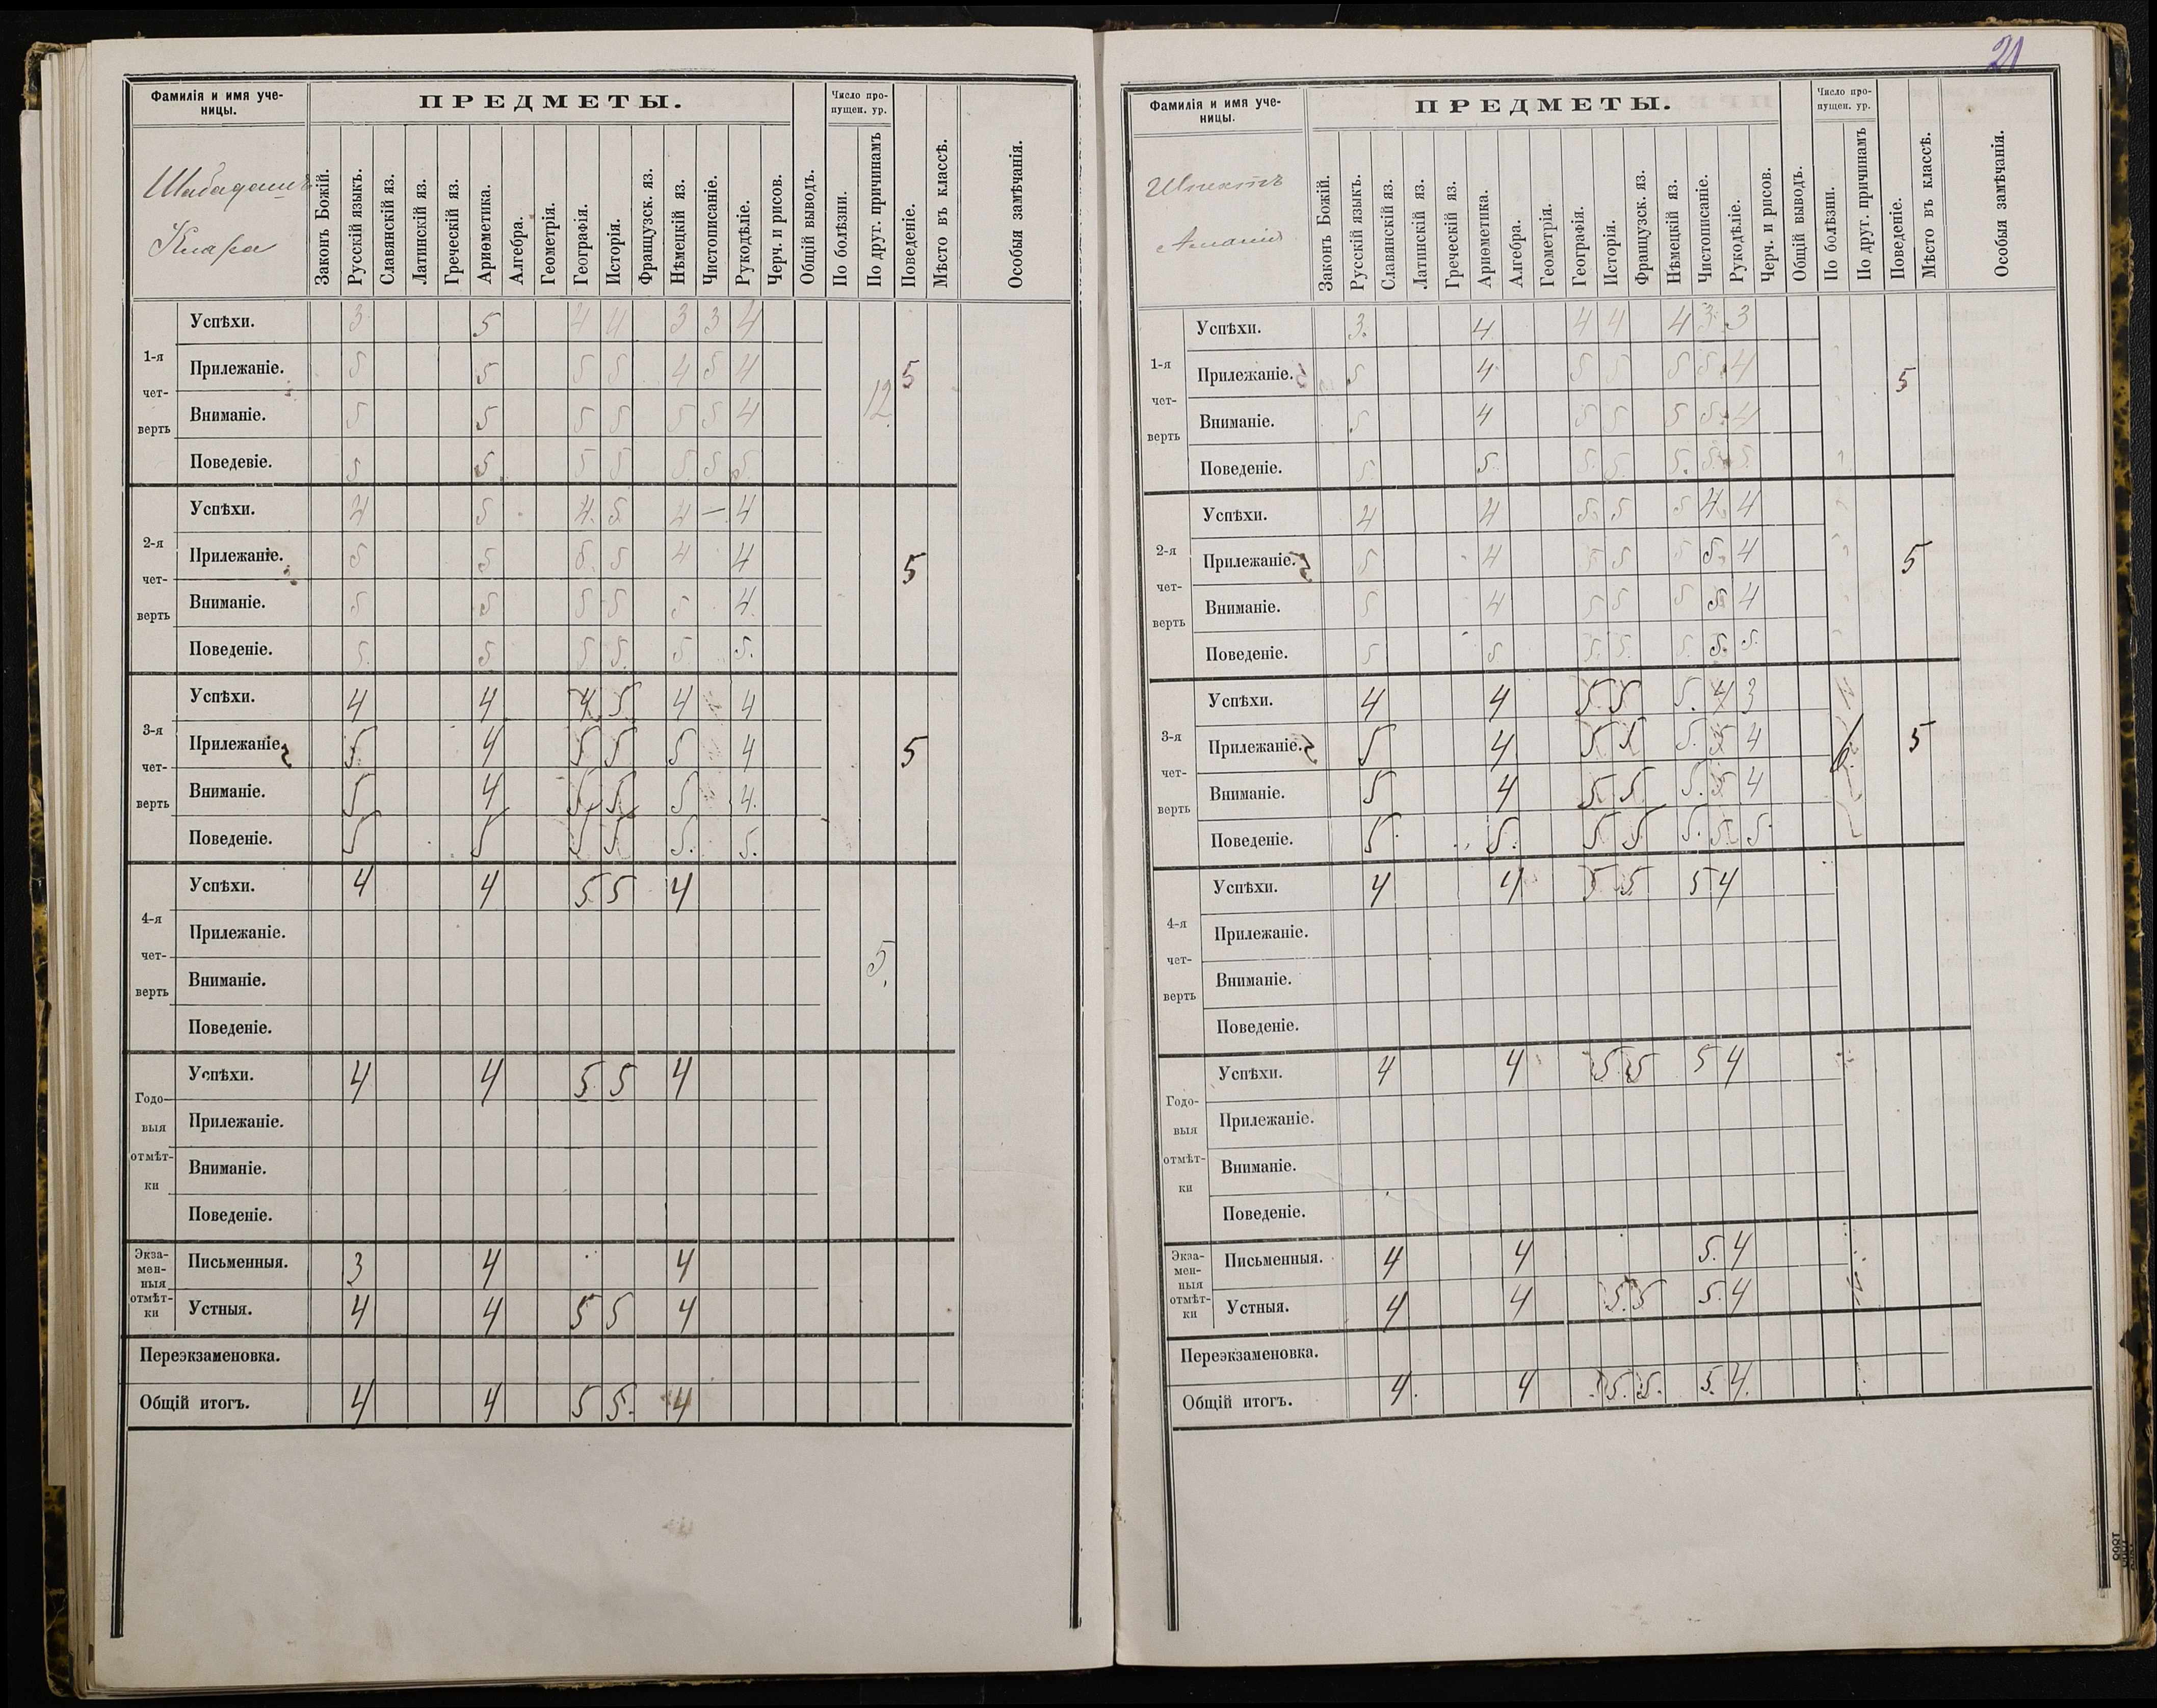 Фамилія и имя уче-
ницы.
ПРЕДМЕТЫ.
Число про-
пущен. ур.
Клара
Законъ Божій.
Русскій языкъ.
Славянскій яз.
Латинскій яз.
Греческій яз.
Ариѳметика.
Алгебра.
Геометрія.
Географія.
Исторія.
Французск. яз.
Нѣмецкій яз.
Чистописаніе.
Рукодѣліе.
Черч. и рисов.
Общій выводъ.
По болѣзни.
По друг. причинамъ
Поведеніе.
Мѣсто въ классѣ.
Особыя замѣчанія.
1-я
чет-
верть
Успѣхи. 3 5 4 4 3 3 4
Прилежаніе. 5 5 5 5 4 5 4
Вниманіе. 5 5 5 5 5 5 4
Поведевіе. 5 5 5 5 5 5 5
12 5
2-я
чет-
верть
Успѣхи. 4 5 4 5 4 — 4
Прилежаніе. 5 5 5 5 4 4
Вниманіе. 5 5 5 5 5 4
Поведеніе. 5 5 5 5 5 5
5
3-я
чет-
верть
Успѣхи. 4 4 4 5 4 4
Прилежаніе 5 4 5 5 5 4
Вниманіе. 5 4 5 5 5 4
Поведеніе. 5 5 5 5 5 5
5
4-я
чет-
верть
Успѣхи. 4 4 5 5 4
Прилежаніе.
Вниманіе.
Поведеніе.
5
Годо-
выя
отмѣт-
ки
Успѣхи. 4 4 5 5 4
Прилежаніе.
Вниманіе.
Поведеніе.
Экза-
мен-
ныя
отмѣт-
ки
Письменныя. 3 4 4
Устныя. 4 4 5 5 4
Переэкзаменовка.
Общій итогъ. 4 4 5 5 4
21
Фамилія и имя уче-
ницы.
ПРЕДМЕТЫ.
Число про-
пущен. ур.
Законъ Божій.
Русскій языкъ.
Славянскій яз.
Латинскій яз.
Греческій яз.
Ариѳметика.
Алгебра.
Геометрія.
Географія.
Исторія.
Французск. яз.
Нѣмецкій яз.
Чистописаніе.
Рукодѣліе.
Черч. и рисов.
Общій выводъ.
По болѣзни.
По друг. причинамъ
Поведеніе.
Мѣсто въ классѣ.
Особыя замѣчанія.
1-я
чет-
верть
Успѣхи. 3 4 4 4 4 3 3
Прилежаніе. 5 4 5 5 5 5 4
Вниманіе. 5 4 5 5 5 5 4
Поведеніе. 5 5 5 5 5 5 5
5
2-я
чет-
верть
Успѣхи. 4 4 5 5 5 4 4
Прилежаніе. 5 4 5 5 5 5 4
Вниманіе. 5 4 5 5 5 5 4
Поведеніе. 5 5 5 5 5 5 5
5
3-я
чет-
верть
Успѣхи. 4 4 5 5 5 4 3
Прилежаніе. 5 4 5 5 5 5 4
Вниманіе. 5 4 5 5 5 5 4
Поведеніе. 5 5 5 5 5 5 5
6 5
4-я
чет-
верть
Успѣхи. 4 4 5 5 5 4
Прилежаніе.
Вниманіе.
Поведеніе.
Годо-
выя
отмѣт-
ки
Успѣхи. 4 4 5 5 5 4
Прилежаніе.
Вниманіе.
Поведеніе.
Экза-
мен-
ныя
отмѣт-
ки
Письменныя. 4 4 5 4
Устныя. 4 4 5 5 5 4
Переэкзаменовка.
Общій итогъ. 4 4 5 5 5 4